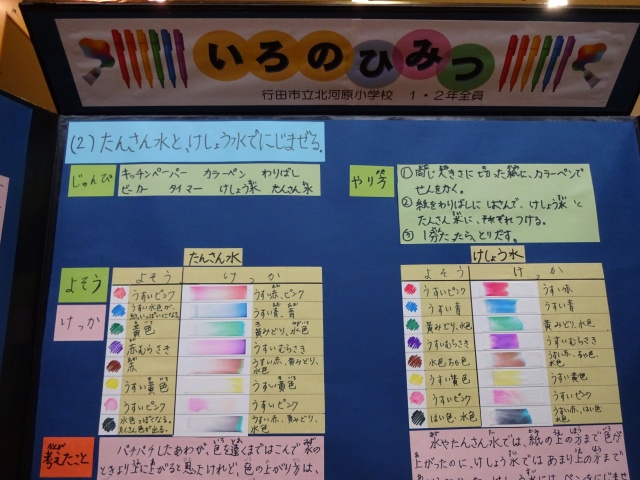 いろのひみつ
行田市立北河原小学校 1・2年全員
(2) たんさん水と、けしょう水でにじませる。
じゅんび
キッチンペーパー カラーペン わりばし
ビーカー タイマー けしょう水 たんさん水
やり方
① 同じ大きさに切った紙に、カラーペンで
せんをかく。
② 紙をわりばしにはさんで、けしょう水と
たんさん水に、それぞれつける。
③ 1分たったら、とりだす。
たんさん水
よそう
けっか
よそう けっか
うすいピンク うすい赤、ピンク
うすい水色が、紙いっぱいになる。 うすい青、青
黄色 黄みどり、水色
赤むらさき うすいむらさき
赤 うすい赤、黄みどり、水色
うすい黄色 うすい黄色
うすいピンク うすいピンク
水色っぽくなる。たくさん色が出る。 うすい赤、黄みどり、水色
けしょう水
よそう けっか
うすいピンク うすい赤
うすい青 うすい青
黄みどり、水色 黄みどり、水色
うすいむらさき うすいむらさき
水色、ちゃ色 うすい赤、ちゃ色、水色
うすい黄色 うすい黄色
うすいピンク うすいピンク
はい色・水色 うすい赤、はい色、水色
考えたこと
パチパチしたあわが、色を遠くまではこんで水の
ときより上に上がると思ったけれど、色の上がり方は、
水やたんさん水では、紙の上の方まで色が
上がったのに、けしょう水ではあまり上の方まで